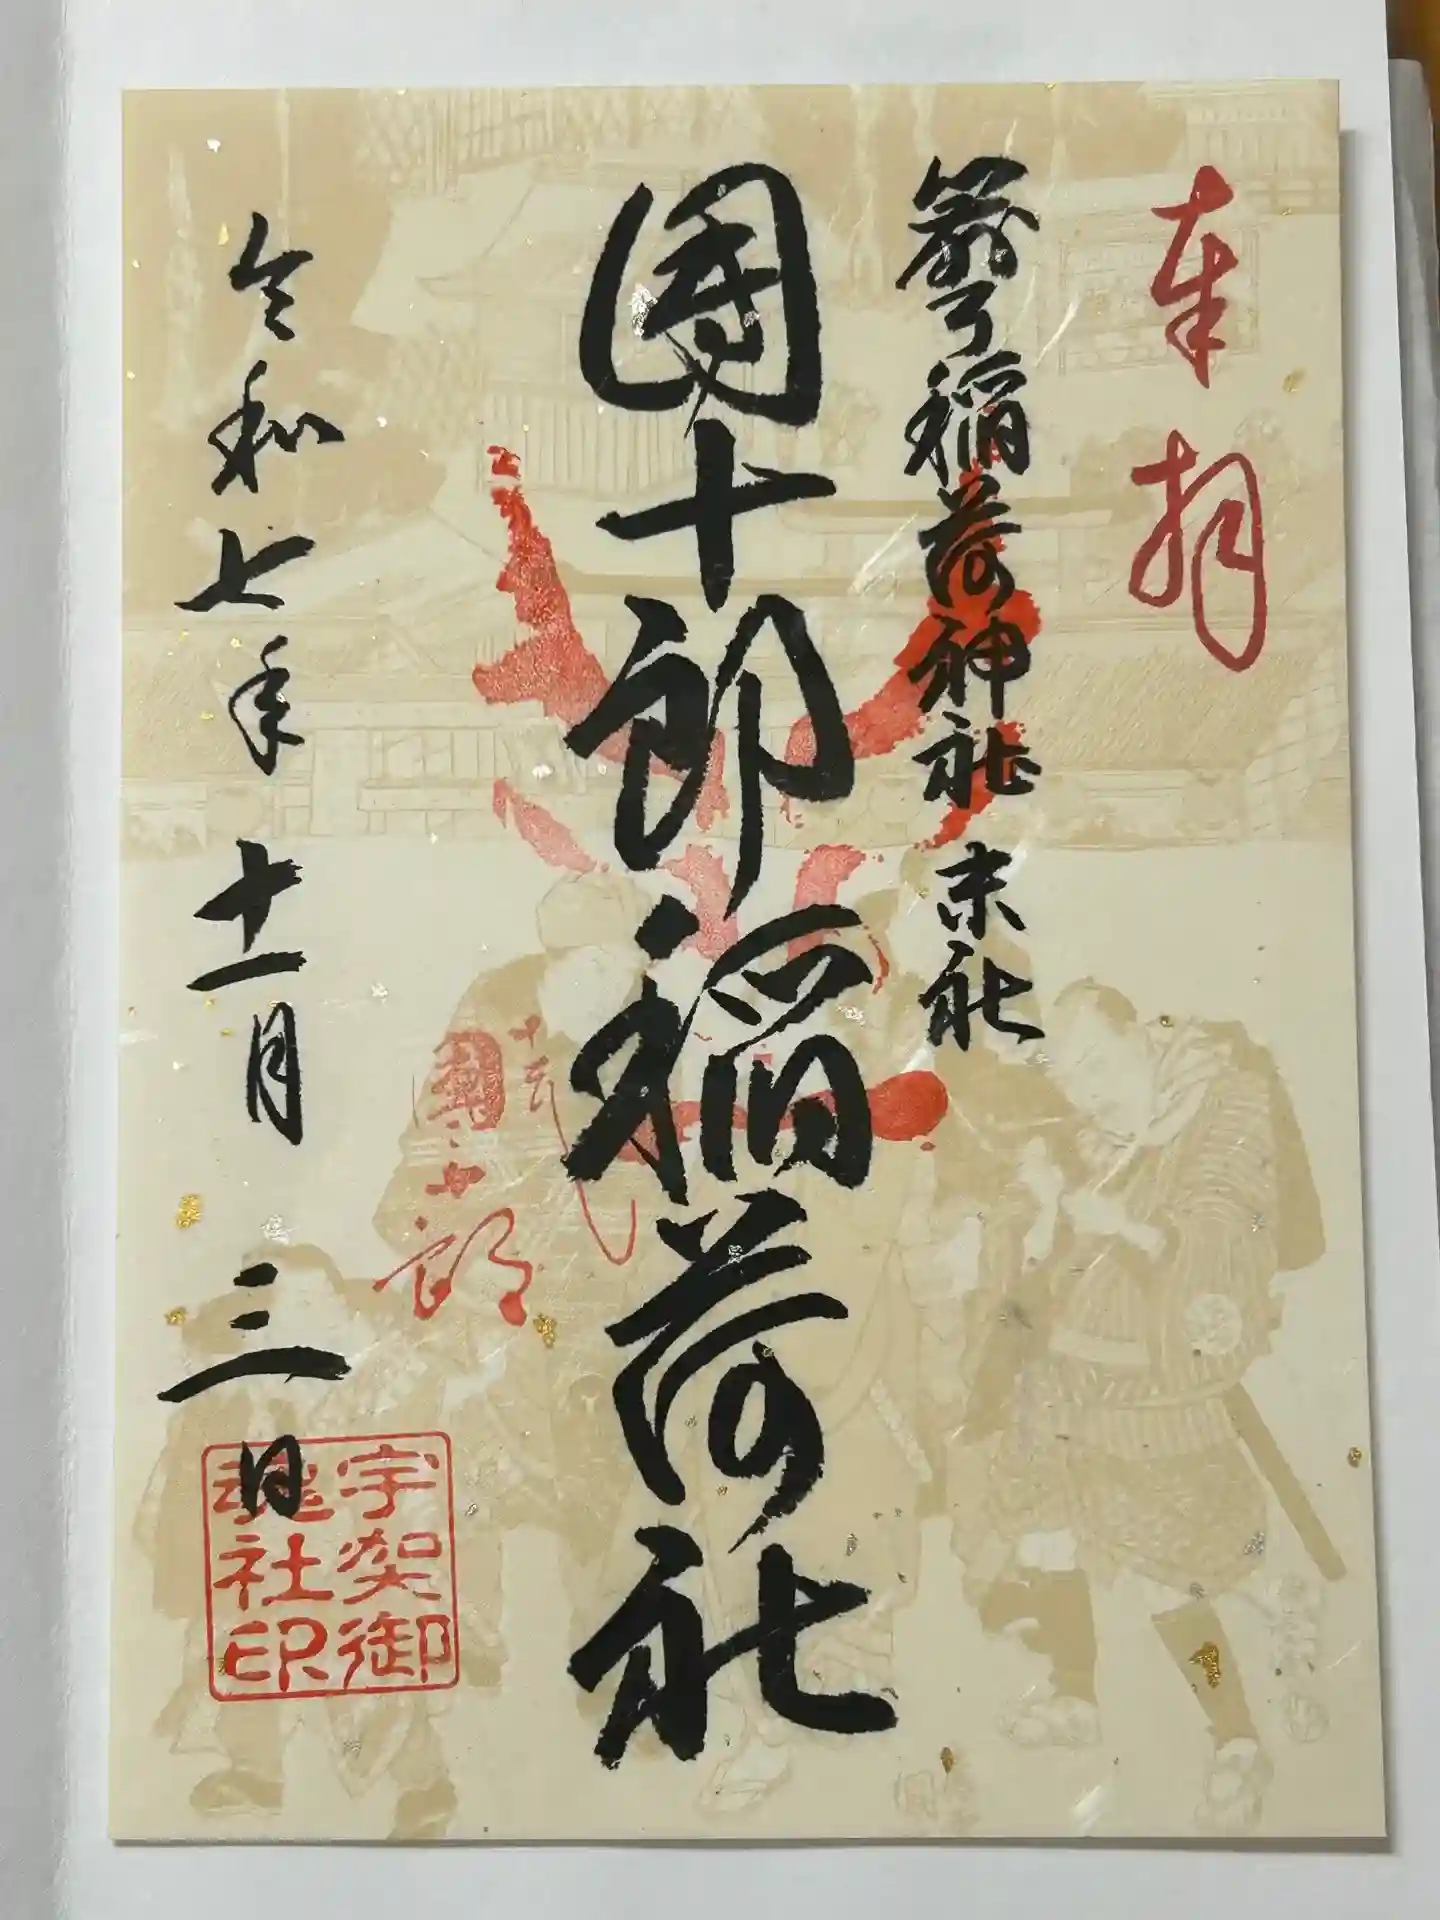 奉拝
箭弓稲荷神社 末社
團十郎稲荷社
十三代
團十郎
令和七年十一月三日
宇賀御
魂社印